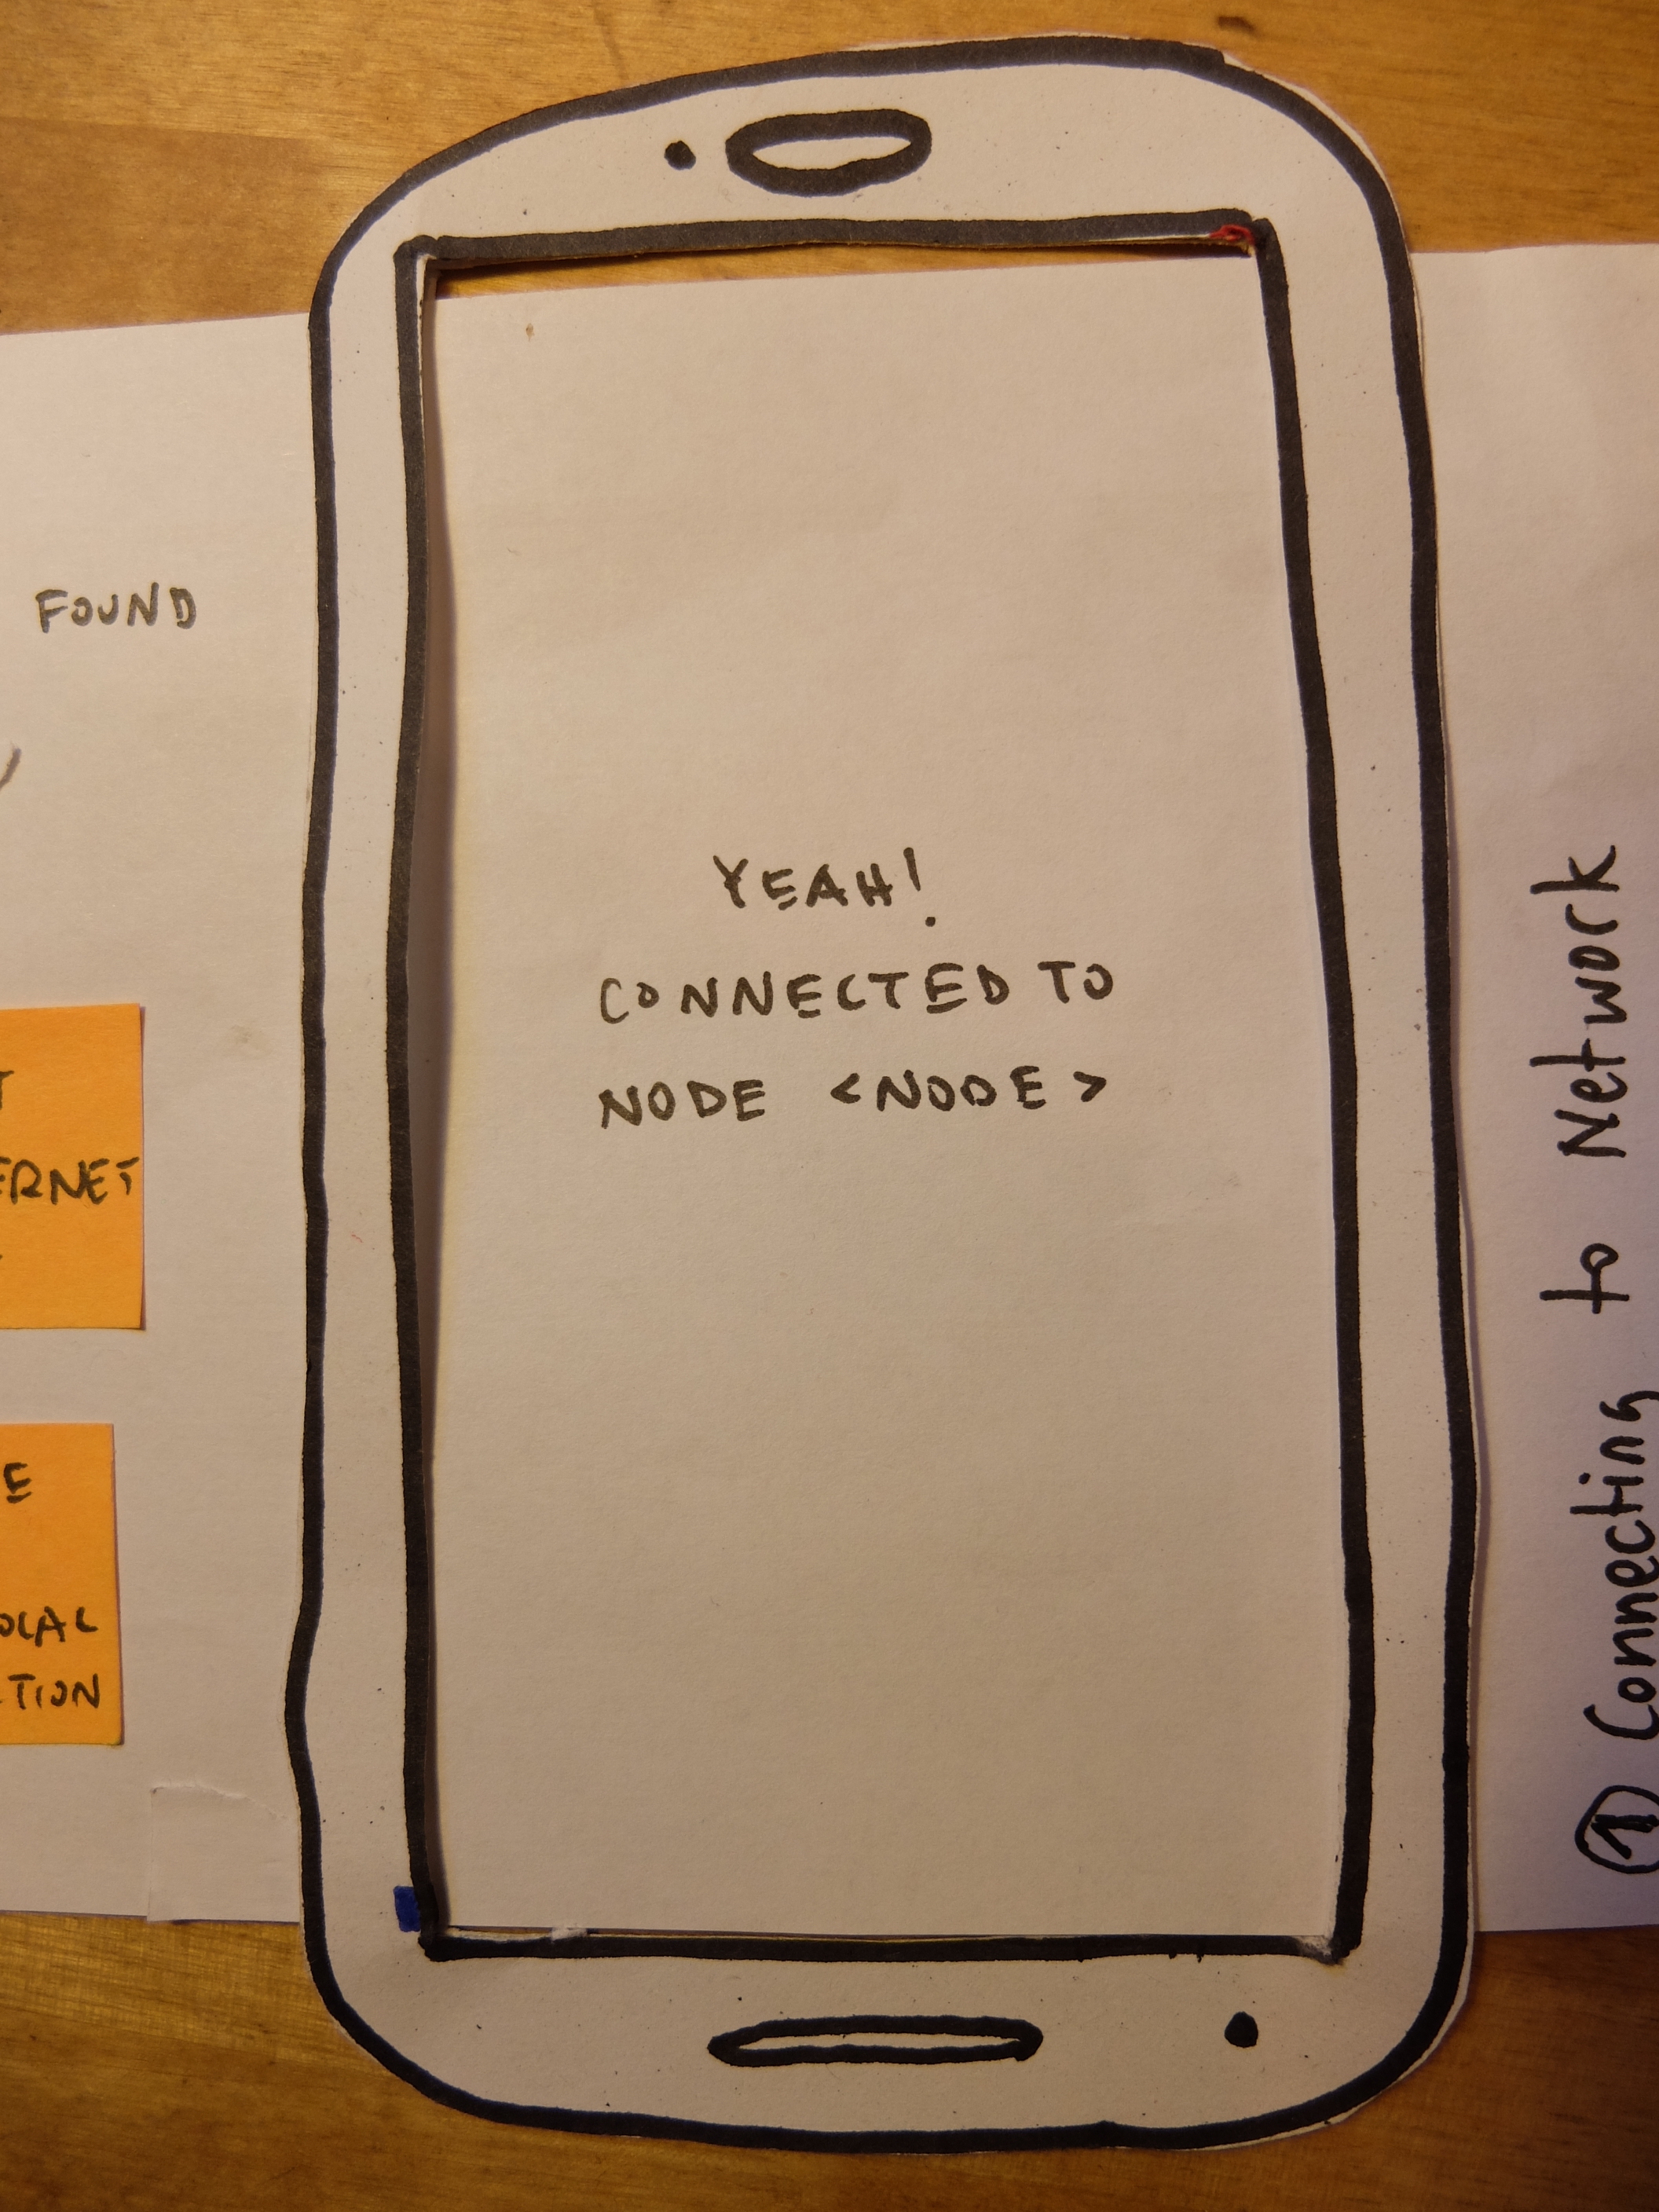 FOUND
ERNET
OCAL
TION
YEAH!
CONNECTED TO
NODE <NODE>
① Connecting to Network